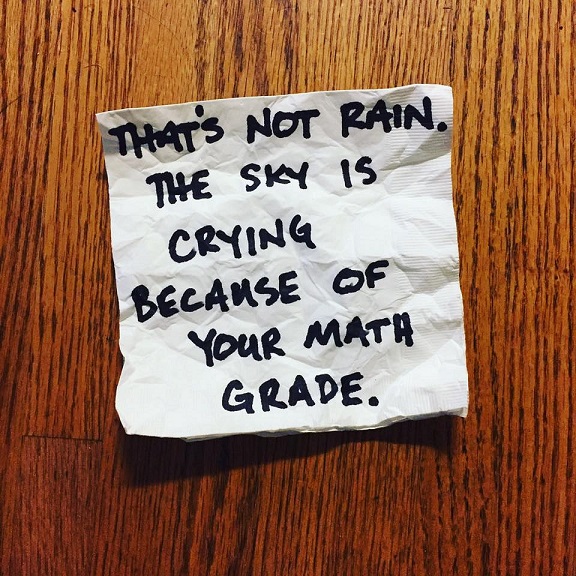 THAT'S NOT RAIN.
THE SKY IS
CRYING
BECAUSE OF
YOUR MATH
GRADE.